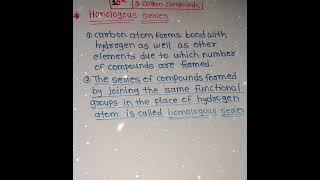 10th
3 Carbon Compounds
* Homologous Series
① carbon atom forms bond with
hydrogen as well as other
elements due to which number
of compounds are formed.
② The series of compounds formed
by joining the same functional
groups in the place of hydrogen
atom is called homologous series